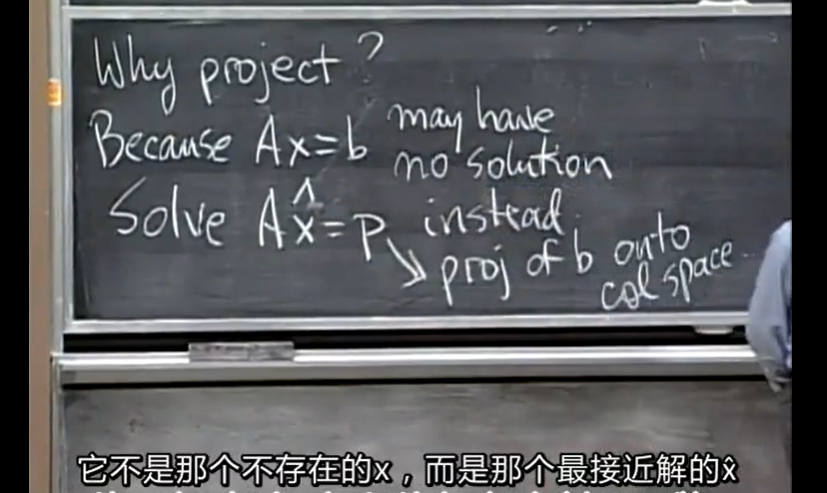 Why project?
Because Ax=b may have
no solution
Solve Ax̂=p instead.
proj of b onto
col space
它不是那个不存在的x，而是那个最接近解的x̂